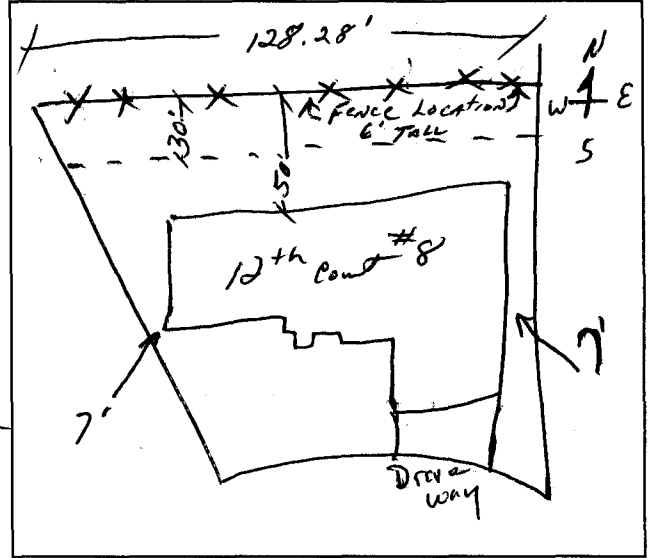 128.28'
N
W E
S
FENCE LOCATION
6' TALL
30'
50'
12th Court #8
7'
7'
Drive
way